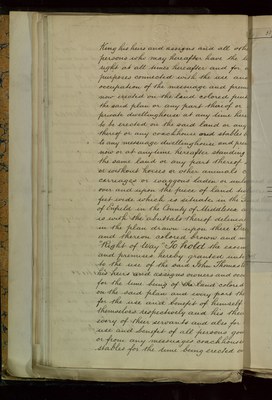 King his heirs and assigns and all other
persons who may hereafter have the
right at all times hereafter and for
purposes connected with the use and
occupation of the messuage and
now erected on the land colored pink
the said plan or any part thereof or
private dwellinghouse at any time
to be erected on the said land or any
thereof or any coachhouse and stables
to any messuage dwellinghouse and
now or at any time hereafter standing
the same land or any part thereof
or without horses or other animals
carriages or waggons laden or
over and upon the piece of land
feet wide which is situate in the
of in the County of Middlesex
is with the abuttals thereof
in the plan drawn upon these
and thereon colored brown and
"Right of Way" To hold the
and premises hereby granted unto
to the use of the said John Thomas
his heirs and assigns owners and
for the time being of the land colored
on the said plan and every part
for the use and benefit of himself
themselves respectively and his
of their servants and also for
use and benefit of all persons
or from any messuages coachhouses
stables for the time being erected